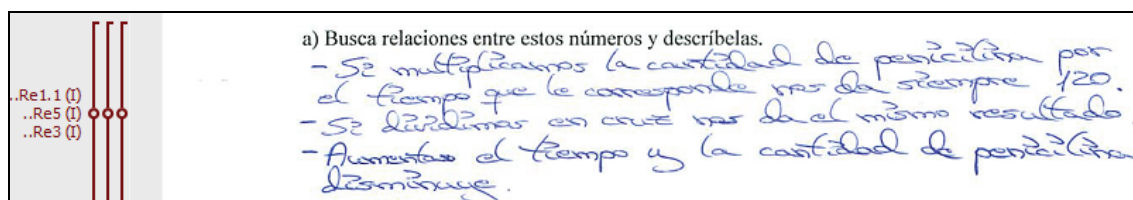 a) Busca relaciones entre estos números y descríbelas.
- Si multiplicamos la cantidad de penicilina por
el tiempo que le corresponde nos da siempre 120.
- Si dividimos en cruz nos da el mismo resultado.
- Aumentas el tiempo y la cantidad de penicilina
disminuye.
..Re1.1 (I)
..Re5 (I)
..Re3 (I)